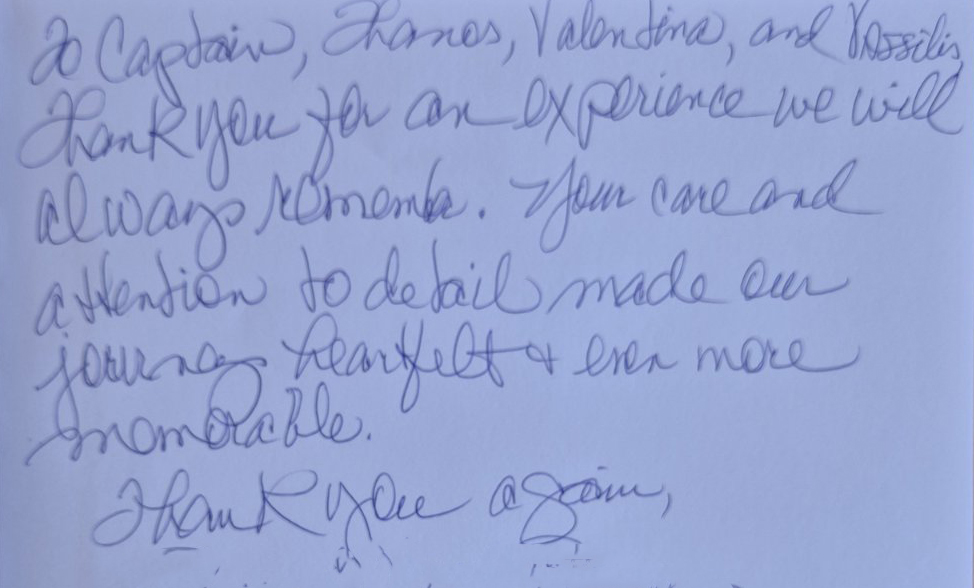 To Captain, Thanos, Valentina, and Vassilis,
Thank you for an experience we will
always remember. Your care and
attention to detail made our
journey heartfelt & even more
memorable.
Thank you again,